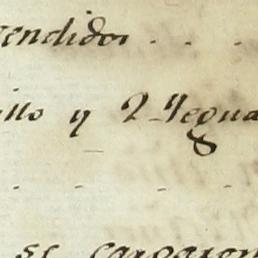 vendidos . . .
illo y 2 Yegua
. . . .
se cargaron